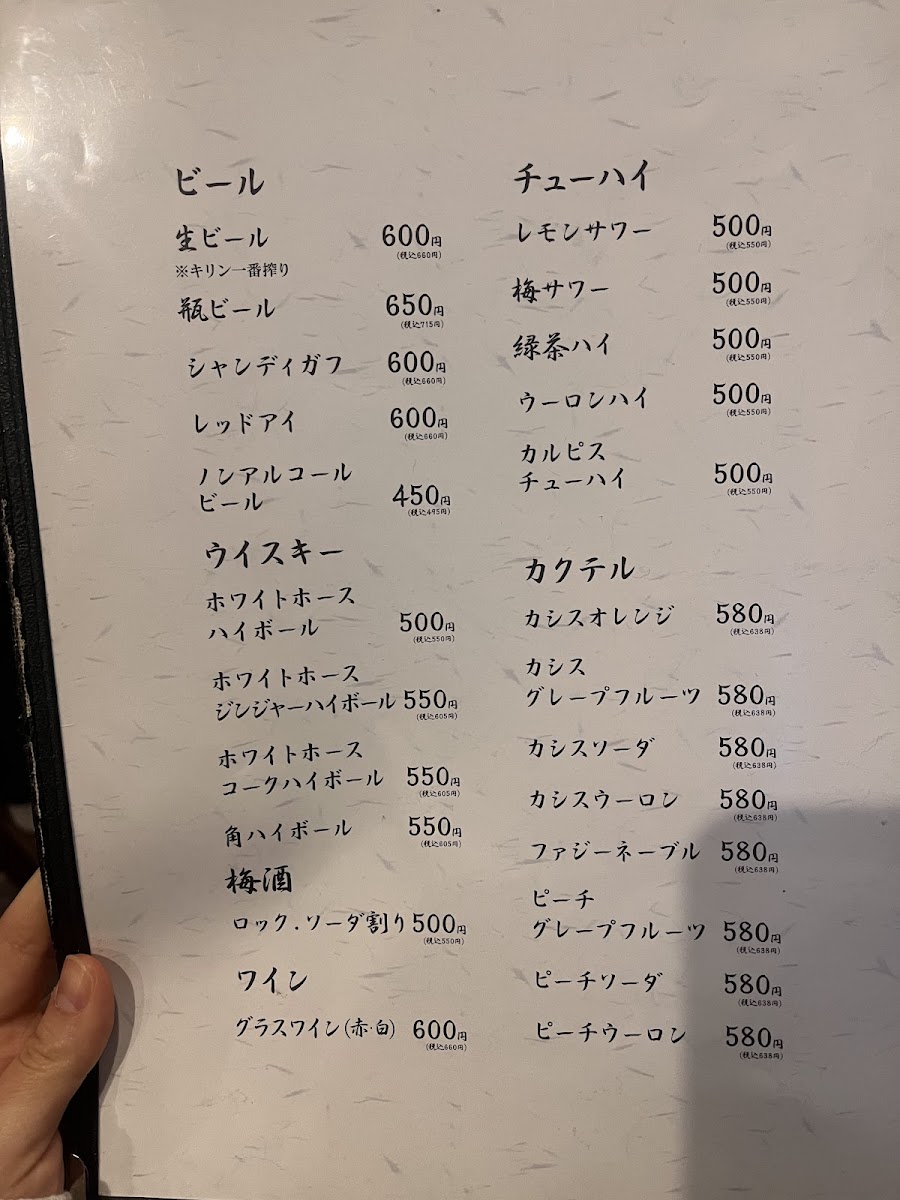 ビール
生ビール 600円
(税込660円)
※キリン一番搾り
瓶ビール 650円
(税込715円)
シャンディガフ 600円
(税込660円)
レッドアイ 600円
(税込660円)
ノンアルコール
ビール 450円
(税込495円)
ウイスキー
ホワイトホース
ハイボール 500円
(税込550円)
ホワイトホース
ジンジャーハイボール 550円
(税込605円)
ホワイトホース
コークハイボール 550円
(税込605円)
角ハイボール 550円
(税込605円)
梅酒
ロック.ソーダ割り 500円
(税込550円)
ワイン
グラスワイン(赤·白) 600円
(税込660円)
チューハイ
レモンサワー 500円
(税込550円)
梅サワー 500円
(税込550円)
緑茶ハイ 500円
(税込550円)
ウーロンハイ 500円
(税込550円)
カルピス
チューハイ 500円
(税込550円)
カクテル
カシスオレンジ 580円
(税込638円)
カシス
グレープフルーツ 580円
(税込638円)
カシスソーダ 580円
(税込638円)
カシスウーロン 580円
(税込638円)
ファジーネーブル 580円
(税込638円)
ピーチ
グレープフルーツ 580円
(税込638円)
ピーチソーダ 580円
(税込638円)
ピーチウーロン 580円
(税込638円)